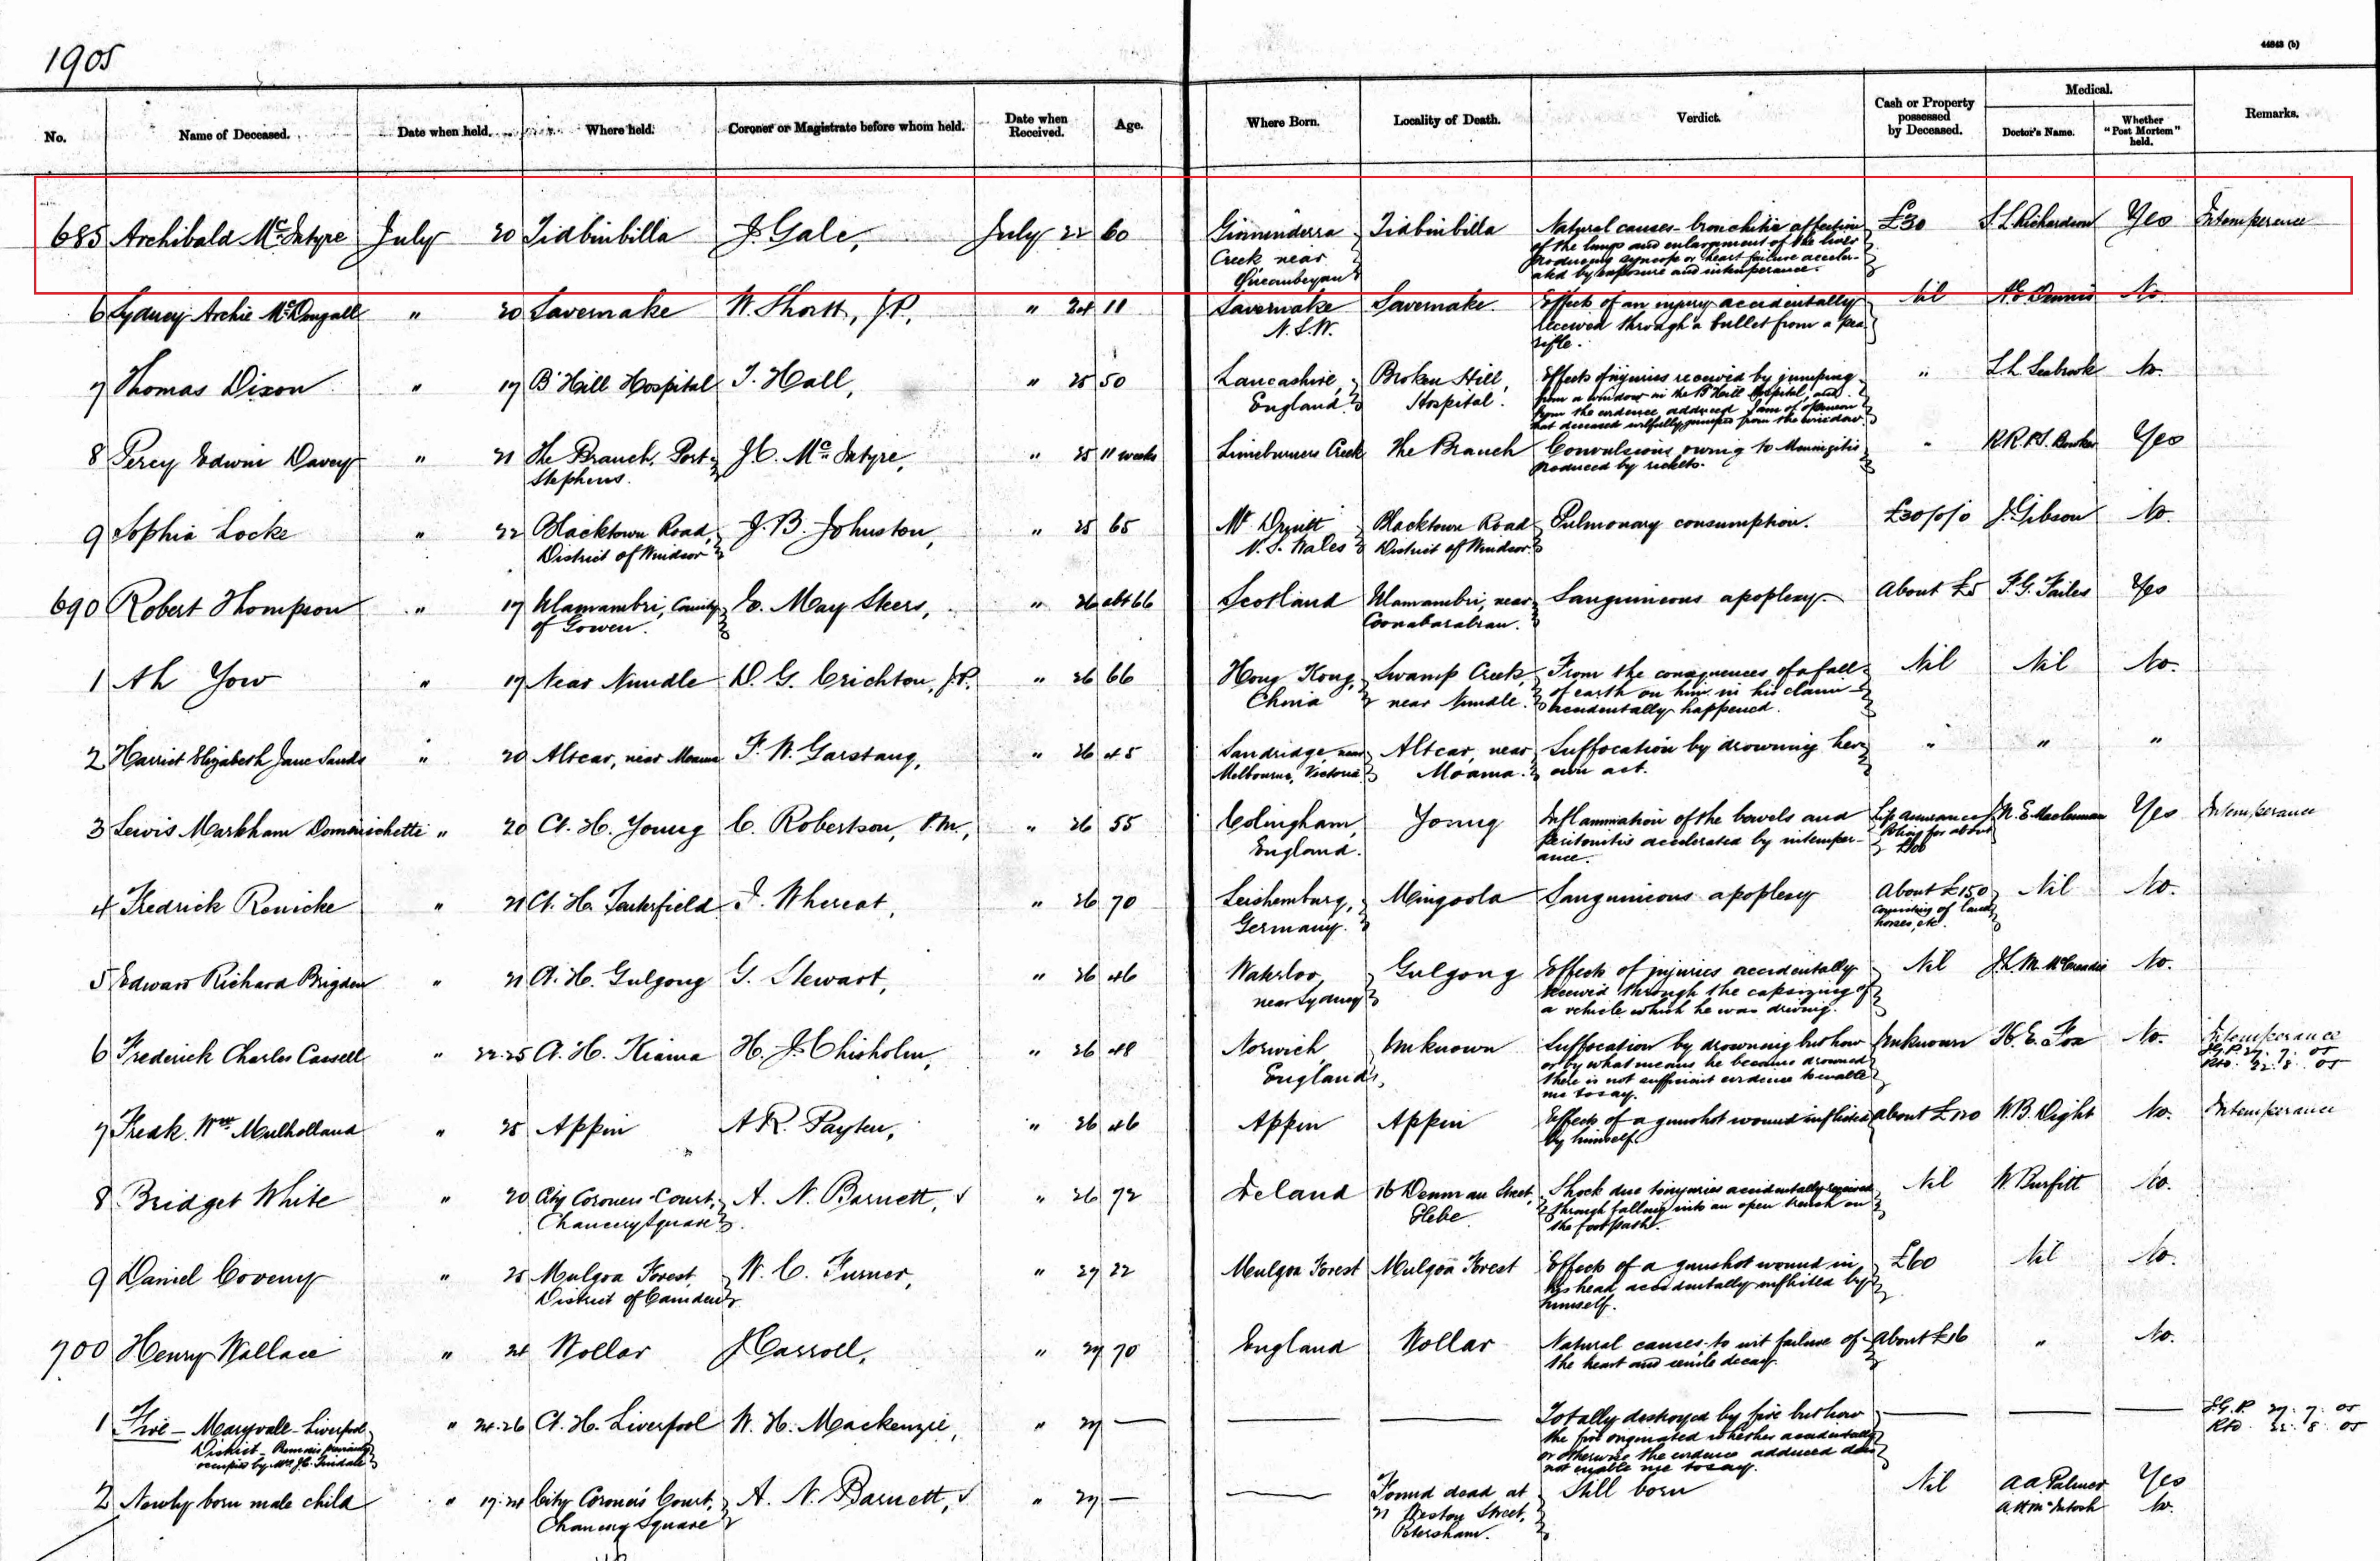 1905
44843 (b)
No. Name of Deceased. Date when held. Where held. Coroner or Magistrate before whom held. Date when Received. Age. Where Born. Locality of Death. Verdict. Cash or Property possessed by Deceased. Medical. Doctor's Name. Whether "Post Mortem" held. Remarks.
685 Archibald McIntyre July 20 Tidbinbilla J. Gale, July 22 60 Ginninderra Tidbinbilla Natural causes - bronchitic affection £30 S L Richardson Yes Intemperance
Creek near of the lungs and enlargement of the liver
Queanbeyan producing syncope or heart failure acceler-
ated by exposure and intemperance.
6 Sydney Archie McDougall " 20 Savernake W. Shortt, J.P., " 24 11 Savernake Savernake. Effects of an injury accidentally Nil Dennis No.
N.S.W. received through a bullet from a pea
rifle.
7 Thomas Dixon " 17 B' Hill Hospital T. Hall, " 25 50 Lancashire, Broken Hill, Effects of injuries received by jumping " S L Seabrook No.
England. Hospital. from a window in the B' Hill Hospital, and
from the evidence adduced I am of opinion
that deceased wilfully jumped from the window.
8 Percy Edwin Davey " 21 The Branch, Port J.C. McIntyre, " 25 11 weeks Limeburners Creek The Branch Convulsions owing to Meningitis " R.R.P.S. Bowker Yes
Stephens. produced by rickets.
9 Sophia Locke " 22 Blacktown Road, J. B. Johnston, " 25 65 Mt Druitt Blacktown Road Pulmonary consumption. £30/0/0 J. Gibson No.
District of Windsor N. S. Wales District of Windsor
690 Robert Thompson " 17 Ulamambri, County E. May Steers, " 26 abt 66 Scotland Ulamambri, near Sanguineous apoplexy. About £5 F.G. Failes Yes
of Gowen. Coonabarabran.
1 Ah Yow " 17 Near Nundle D. G. Crichton, J.P. " 26 66 Hong Kong, Swamp Creek, From the consequences of a fall Nil Nil No.
China near Nundle. of earth on him in his claim
accidentally happened.
2 Harriet Elizabeth Jane Sands " 20 Altcar, near Moama F. W. Garstang, " 26 45 Sandridge, near Altcar, near Suffocation by drowning her " " "
Melbourne, Victoria Moama. own act.
3 Lewis Markham Domenichetti " 20 Ct. H. Young C. Robertson, P.M., " 26 55 Colingham, Young Inflammation of the bowels and Life assurance N. E. Maclennan Yes Intemperance
England. peritonitis accelerated by intemper- Policy for about
ance. £100
4 Fredrick Renicke " 21 Ct. H. Tenterfield J. Whereat, " 26 70 Leishemburg, Mingoola Sanguineous apoplexy About £150 Nil No.
Germany. consisting of land
horses, etc.
5 Edward Richard Brigden " 21 Ct. H. Gulgong G. Stewart, " 26 46 Waterloo, Gulgong Effects of injuries accidentally Nil No.
near Sydney received through the capsizing of
a vehicle which he was driving.
6 Frederick Charles Cassell " 22.25 Ct. H. Kiama H. J. Chisholm, " 26 48 Norwich, Unknown Suffocation by drowning but how Unknown H. E. Fox No. Intemperance
England, or by what means he became drowned I.G.P. 27. 7. 05
there is not sufficient evidence to enable Rtd. 22. 8. 05
me to say.
7 Fredk. Wm Mulholland " 25 Appin A R. Payten, " 26 46 Appin Appin Effects of a gunshot wound inflicted about £120 W.B. Dight No. Intemperance
by himself.
8 Bridget White " 20 City Coroners Court, A. N. Barnett, " 26 72 Ireland 16 Denman Street, Shock due to injuries accidentally received Nil W. Burfitt No.
Chancery Square Glebe through falling into an open trench on
the footpath.
9 Daniel Coveny " 25 Mulgoa Forest, W. C. Furner, " 27 22 Mulgoa Forest Mulgoa Forest Effects of a gunshot wound in £60 Nil No.
District of Camden his head accidentally inflicted by
himself.
700 Henry Wallace " 24 Wollar J Carroll, " 27 70 England Wollar Natural causes to wit failure of About £16 " No.
the heart and senile decay.
1 Fire - Maryvale - Liverpool " 24.26 Ct. H. Liverpool W. H. Mackenzie, " 27 — — — Totally destroyed by fire but how — — — I.G.P. 27. 7. 05
District - Premises previously the fire originated whether accidentally Rtd. 22. 8. 05
occupied by Mrs J.C. Tindale or otherwise the evidence adduced does
not enable me to say.
2 Newly born male child " 17.24 City Coroner's Court, A. N. Barnett, " 27 — — Found dead at Still born Nil A A Palmer Yes
Chancery Square 21 Weston Street, A H McIntosh No.
Petersham.